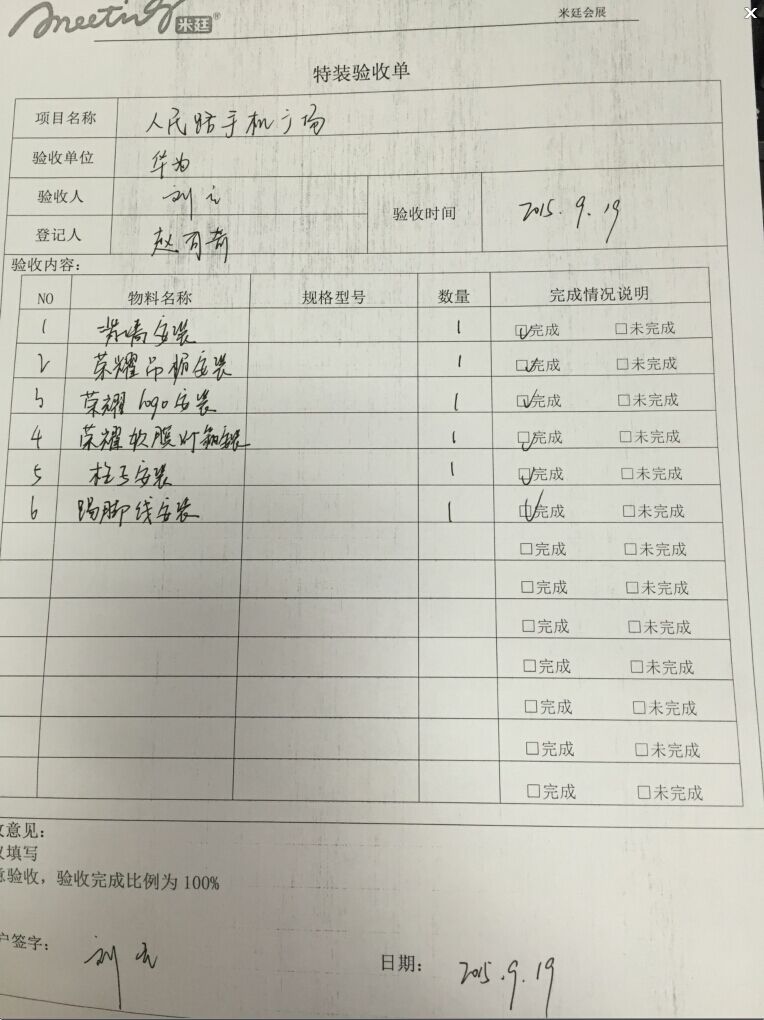 meeting 米廷®
米廷会展
特装验收单
项目名称 人民路手机广场
验收单位 华为
验收人 刘
验收时间 2015.9.19
登记人 赵可奇
验收内容：
NO 物料名称 规格型号 数量 完成情况说明
1 背墙安装 1 ☑完成 □未完成
2 荣耀吊楣安装 1 ☑完成 □未完成
3 荣耀logo安装 1 ☑完成 □未完成
4 荣耀软膜灯箱安装 1 ☑完成 □未完成
5 柱子安装 1 ☑完成 □未完成
6 踢脚线安装 1 ☑完成 □未完成
□完成 □未完成
□完成 □未完成
□完成 □未完成
□完成 □未完成
□完成 □未完成
□完成 □未完成
□完成 □未完成
意见：
填写
验收，验收完成比例为 100%
户签字： 刘
日期： 2015.9.19